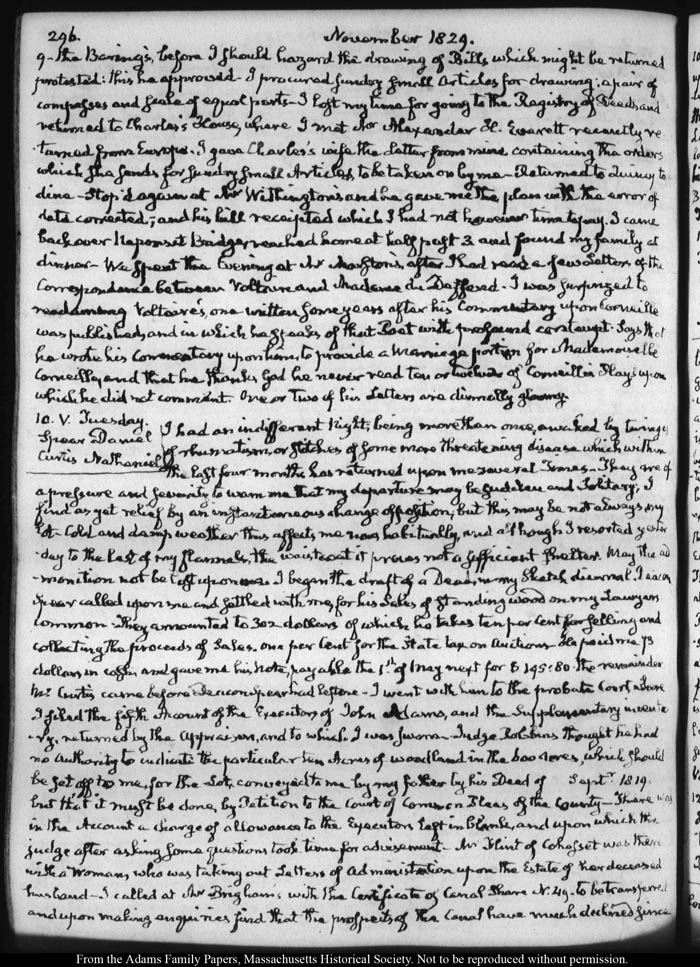 296. November 1829.
9- the Baring's, before I should hazard the drawing of Bills which might be returned
protested: this he approved- I procured sundry small Articles for drawing; a pair of
compasses and scale of equal parts- I lost my time for going to the Registry of Deeds, and
returned to Charles's House, where I met Mr Alexander H. Everett recently re
-turned from Europe. I gave Charles's wife the Letter from mine containing the orders
which she sends for sundry small Articles, to be taken on by me- Returned to Quincy to
dine- Stop'd again at Mr Withington's and he gave me the plan with the error of
data corrected; and his bill receipted which I had not however time to pay. I came
back over Neponset Bridge, reached home at half past 3. and found my family at
dinner- We spent the Evening at Mr Marston's, after I had read a few Letters of the
Correspondence between Voltaire and Madame du Deffand. I was surprized to
read among Voltaire's, one written some years after his Commentary upon Corneille
was published, and in which he speaks of that Poet with profound contempt. Says that
he wrote his Commentary upon him, to provide a Marriage portion for Mademoiselle
Corneille, and that he thanks God he never read ten or twelve of Corneille's Plays upon
which he did not comment. One or two of his Letters are dismally gloomy.
10. V. Tuesday.
Spear Daniel
Curtis Nathaniel
I had an indifferent Night, being more than once, awaked by twinges
of rhumatism, or stitches of some more threatening disease which within
the last four months has returned upon me several Times- They are of
a pressure and severity to warn me that my departure may be sudden and solitary; I
find as yet relief by an instantaneous change of position; but this may be not always my
lot- Cold and damp weather thus affects me now habitually, and although I resorted yester
-day to the last of my flannels, the waistcoat it proves not a sufficient shelter. May the ad
-monition not be lost upon me. I began the draft of a Deed, in my Sketch diurnal. Deacon
Spear called upon me and settled with me, for his Sales of standing wood on my Lawyers
common- They amounted to 302 dollars of which he takes ten per Cent for selling and
collecting the proceeds of Sales, one per Cent for the State tax on Auctions- He paid me 73
dollars in cash, and gave me his note, payable the 1st of May next for $195:80 the remainder
Mr Curtis came before Deacon Spear had left me- I went with him to the probate Court, where
I filed the fifth Account of the Executors of John Adams, and the Supplementary invento
-ry, returned by the appraisers, and to which I was sworn- Judge Robbins thought he had
no authority to indicate the particular ten Acres of woodland in the 600 Acres, which should
be set off to me, for the Lot, conveyed to me by my father by his Deed of Septr 1819.
but that it must be done, by Petition to the Court of Common Pleas of the County- There was
in the Account a charge of allowance to the Executors left in blank, and upon which the
judge after asking some questions took time for advisement- Mr Flint of Cohasset was there
with a Woman, who was taking out Letters of administration upon the Estate of her deceased
husband- I called at Mr Brigham's with the Certificate of Canal Share N. 49- to be transferred
and upon making enquiries find that the prospects of the Canal have much declined since
From the Adams Family Papers, Massachusetts Historical Society. Not to be reproduced without permission.